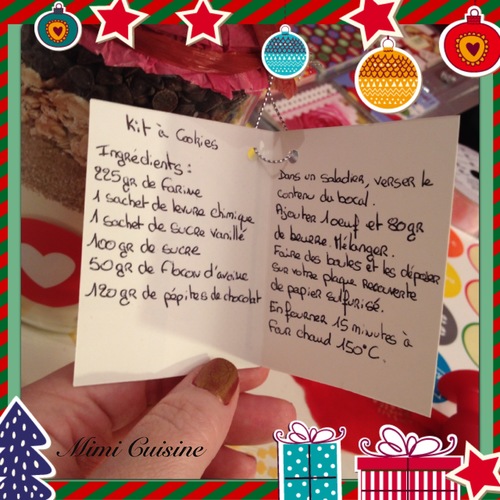 Kit à Cookies
Ingrédients :
225gr de farine
1 sachet de levure chimique
1 sachet de sucre vanillé
100gr de sucre
50gr de flocon d'avoine
120gr de pépites de chocolat
Dans un saladier, verser le
contenu du bocal.
Ajouter 1 oeuf et 80gr
de beurre. Mélanger.
Faire des boules et les déposer
sur votre plaque recouverte
de papier sulfurisé.
Enfourner 15 minutes à
four chaud 150°C.
Mimi Cuisine